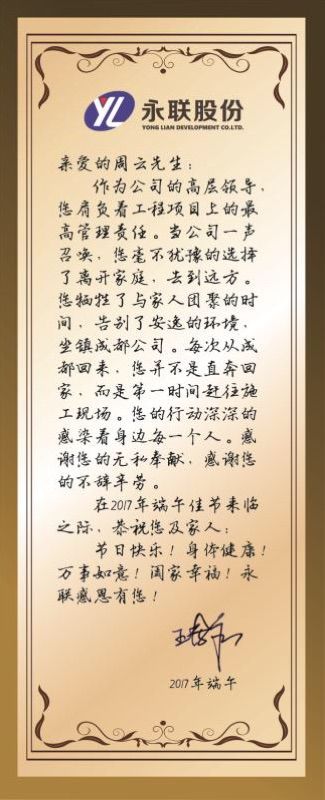 YL
永联股份
YONG LIAN DEVELOPMENT CO.LTD.
亲爱的周云先生：
作为公司的高层领导，
您肩负着工程项目上的最
高管理责任。当公司一声
召唤，您毫不犹豫的选择
了离开家庭，去到远方。
您牺牲了与家人团聚的时
间，告别了安逸的环境，
坐镇成都公司。每次从成
都回来，您并不是直奔回
家，而是第一时间赶往施
工现场。您的行动深深的
感染着身边每一个人。感
谢您的无私奉献，感谢您
的不辞辛劳。
在2017年端午佳节来临
之际，恭祝您及家人：
节日快乐！身体健康！
万事如意！阖家幸福！永
联感恩有您！
2017年端午